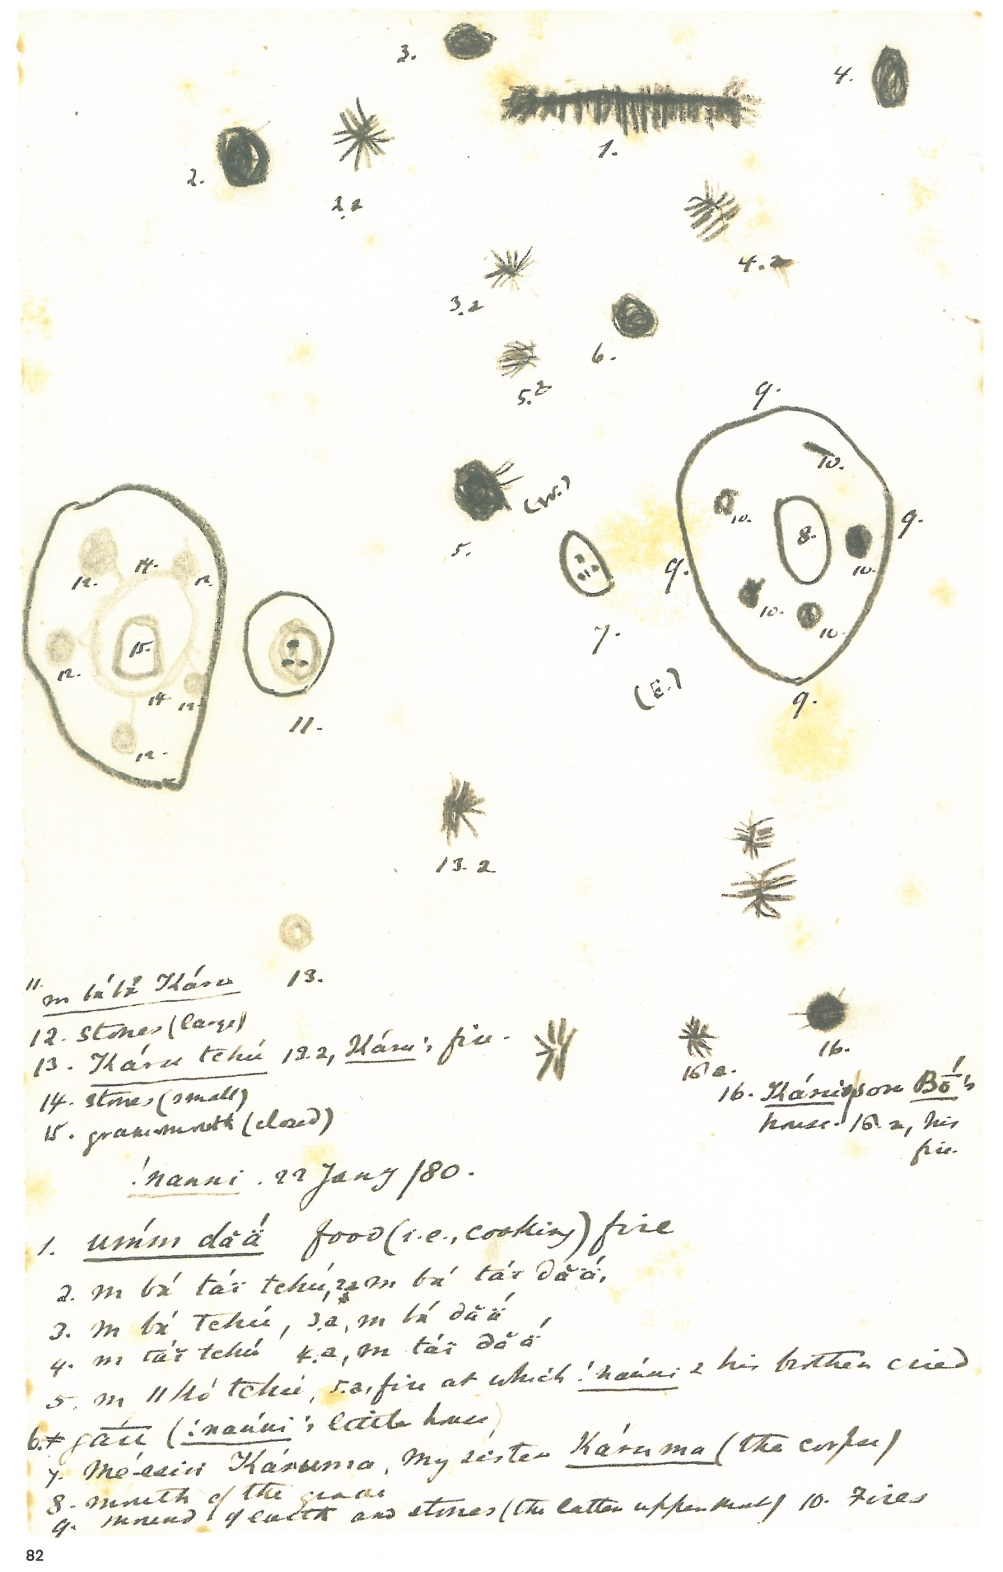 3.
4.
1.
2.
2,a
4.a
3.a
6.
5.a
9.
10.
(W.)
5.
10.
8.
9.
12.
14.
12.
9.
10.
7.
10.
10.
12.
15.
14
12.
11.
(E.)
9.
12.
13.a
13.
11. m bá bá Káru
12. Stones (large)
13. Káru tchú 13.a, Káru's fire.
14. Stones (small)
15. grave-mouth (closed)
16.
16 a.
16. Bō's
house. 16.a, his
fire.
!nanni. 22 Jany /80.
1. úmm dăắ food (i.e., cooking) fire
2. m bá táï tchú, 2a m bá táï dăắ,
3. m bá tchú, 3.a, m bá dăắ
4. m táï tchú 4.a, m táï dăắ
5. m ||kó tchú, 5.a, fire at which !nánni & his brother cried
6. (!nánni's little house)
7. Káruma, my sister Káruma (the corpse)
8. mouth of the grave
9. mound of earth and stones (the latter uppermost) 10. Fires
82